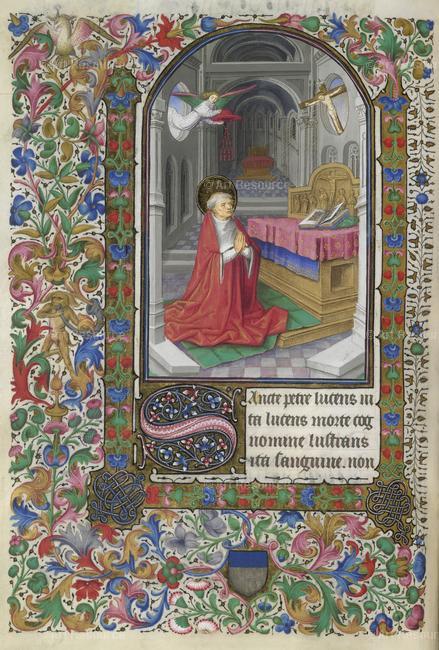 © Art Resource
Sancte petre lucens ui
ta lucens morte cog
nomine lustrans
ita sanguine. non